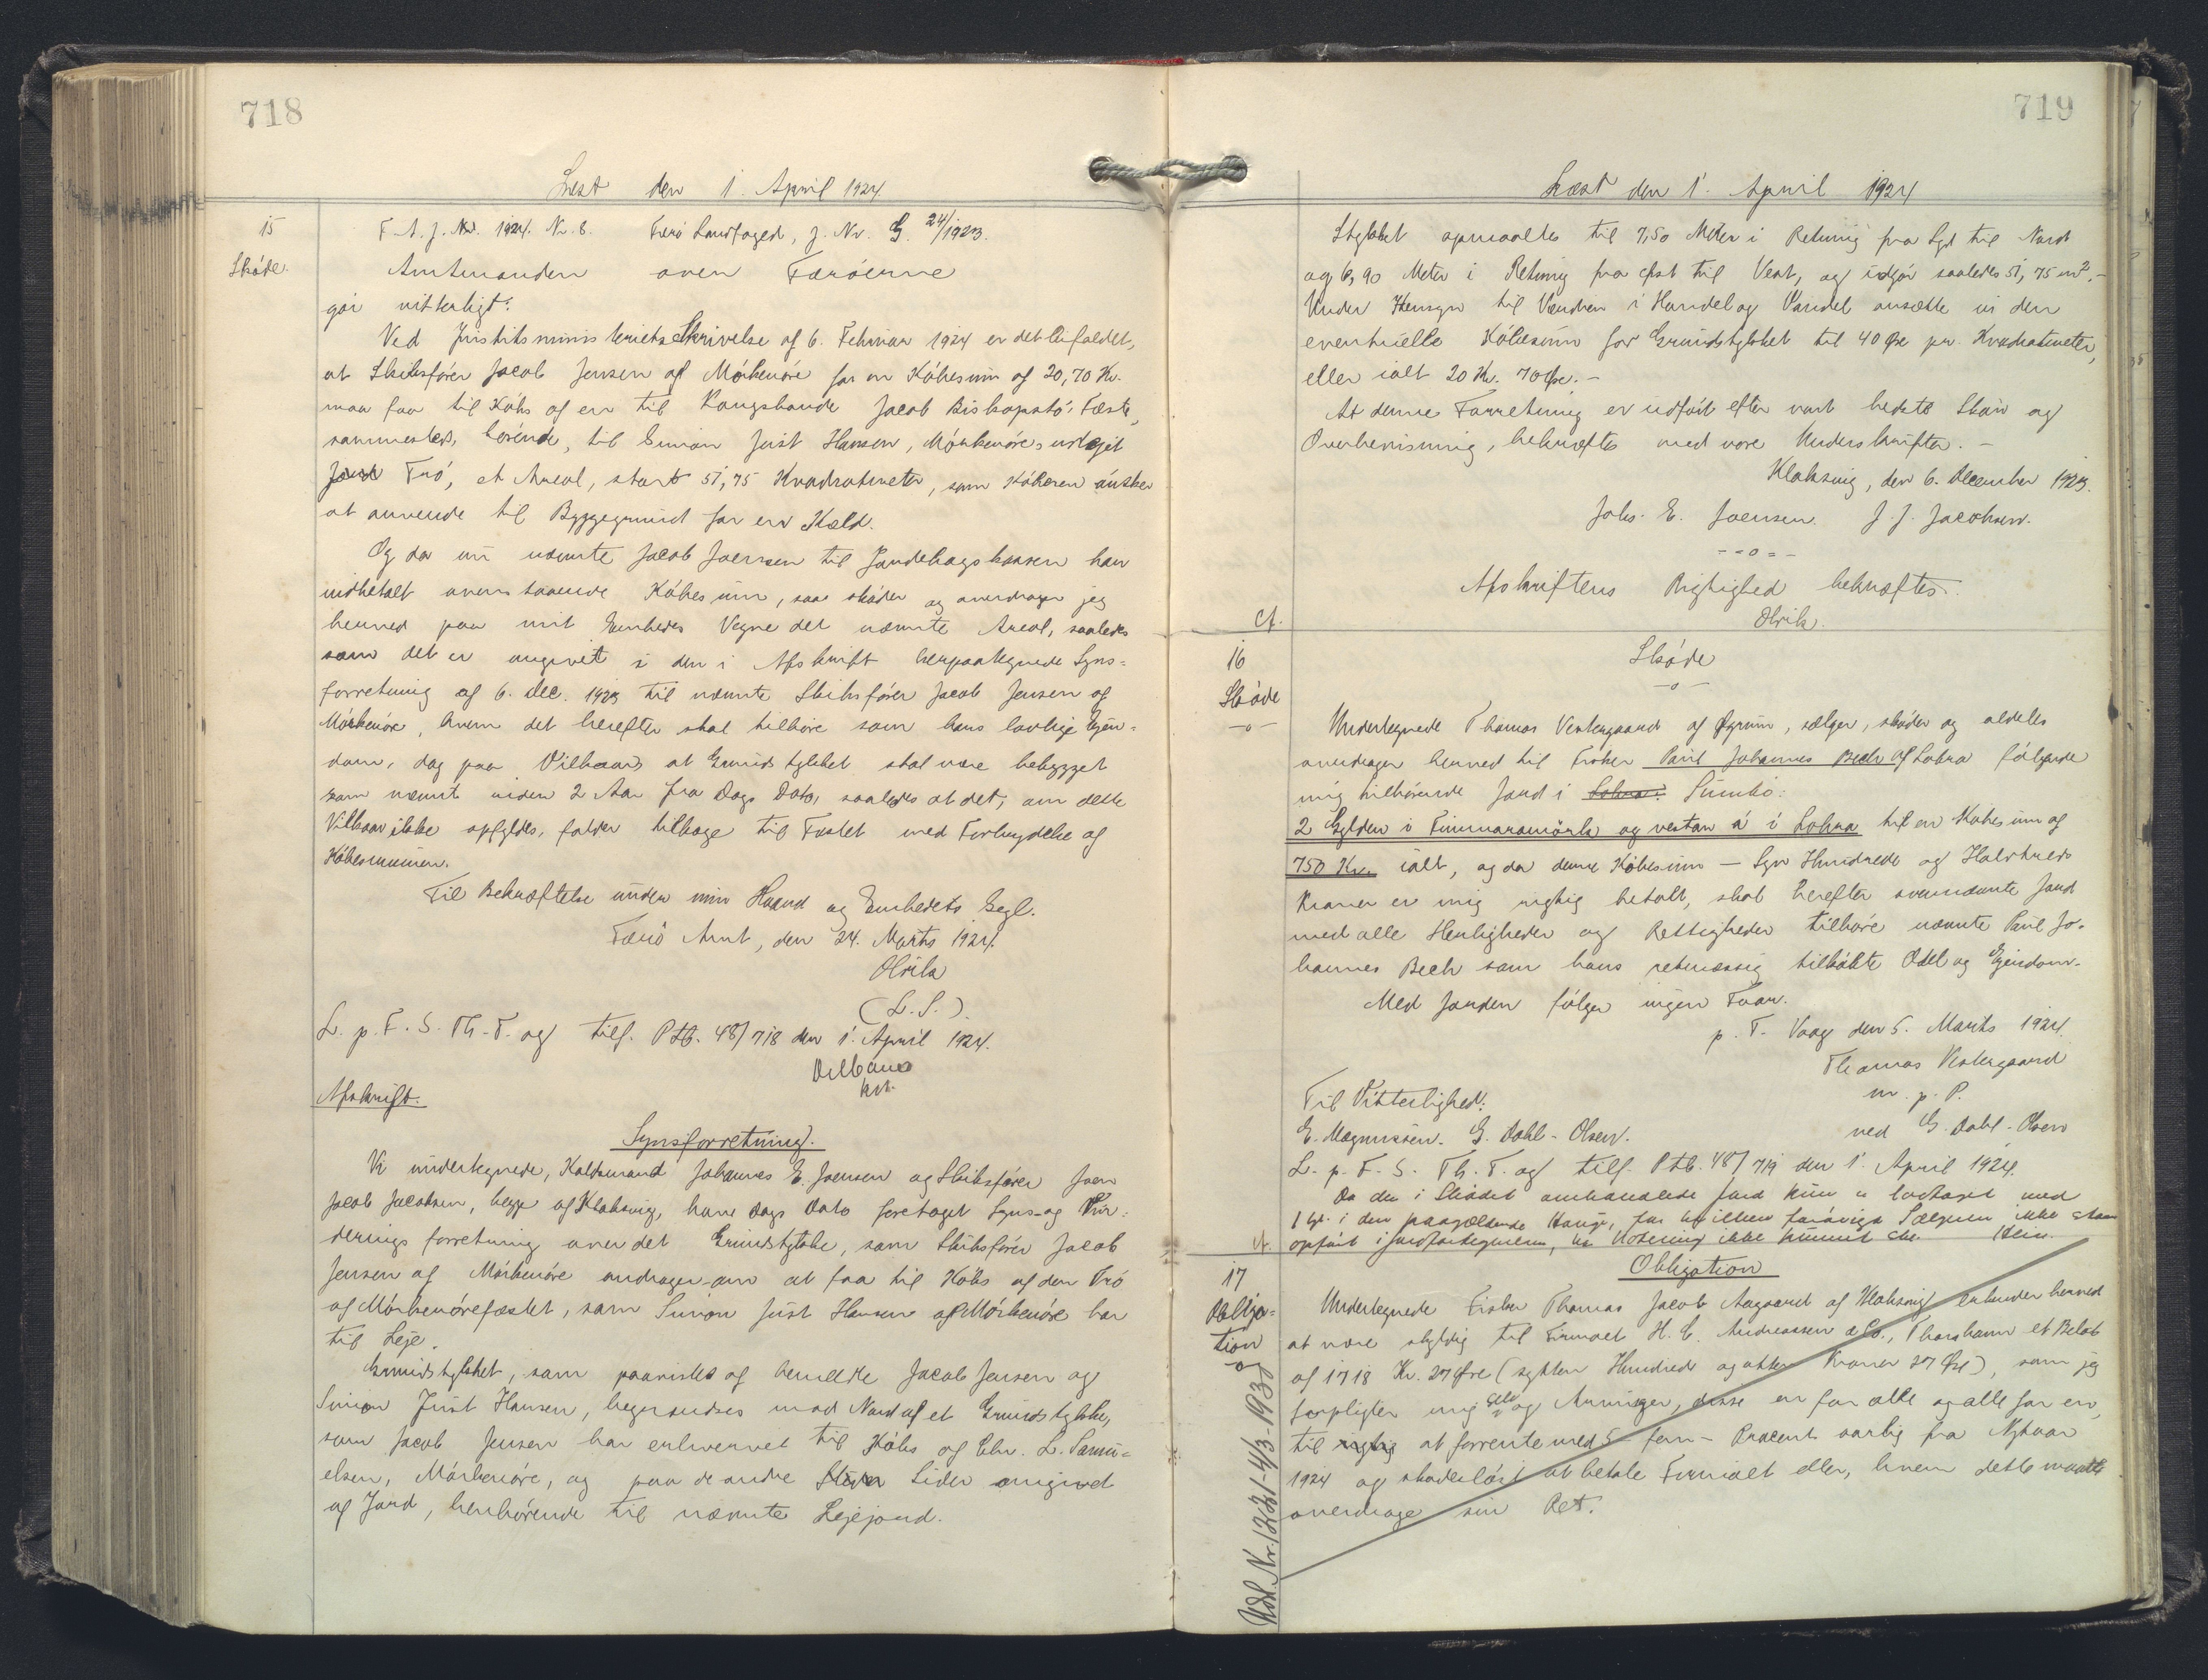 718
Læst den 1. April 1924
15
Skøde.
F. A. J. Nr. 1924. Nr. 8. Færø Landfoged, J. Nr. G. 24/1923.
Amtmanden over Færøerne
gör vitterligt:
Ved Justitsministeriets Skrivelse af 6. Februar 1924 er det bifaldet,
at Skibsfører Jacob Jensen af Mórkenóre for en Kóbesum af 20,70 Kr.
maa faa til Kóbs af en til Kongsbonde Jacob Biskopstó's Fæste,
sammesteds, hörende, til Simon Just Hansen, Mórkenóre, udlejet
Trö, et Areal, stort 51,75 Kvadratmeter, som Kóberen ónsker
at anvende til Byggegrund for en Kæld.
Og da nu nævnte Jacob Joensen til Jordebogskassen har
indbetalt ovenstaaende Kóbesum, saa skóder og overdrager jeg
herved paa mit Embedes Vegne det nævnte Areal, saaledes
som det er angivet i den i Afskrift herpaategnede Syns-
forretning af 6. Dec. 1923 til nævnte Skibsfører Jacob Jensen af
Mórkenóre, hvem det herefter skal tilhöre som hans lovlige Ejen-
dom, dog paa Vilkaar, at Grundstykket skal være bebygget
som nævnt inden 2 Aar fra Dags Dato, saaledes at det, om dette
Vilkaar ikke opfyldes, falder tilbage til Fæstet med Fortrydelse af
Kóbesummen.
Til Bekræftelse under min Haand og Embedets Segl.
Færö Amt, den 24. Marts 1924.
Olrik
(L. S.)
L. p. F. S. Th-T. og tilf. Ptb. 48/718 den 1. April 1924.
kst.
Afskrift.
Synsforretning.
Vi undertegnede, Johannes E. Joensen og Skibsfører Joen
Jacob Jacobsen, begge af Klaksvig, have Dags Dato foretaget Syns- og Vur-
derings forretning over det Grundstykke, som Skibsfører Jacob
Jensen af Mórkenóre andrager om at faa til Kóbs af den Trö
af Mórkenórefæstet, som Simon Just Hansen af Mórkenóre har
til Leje.
Grundstykket, som paavistes af bemeldte Jacob Jensen og
Simon Just Hansen, begrændses mod Nord af et Grundstykke,
som Jacob Jensen har erhvervet til Kóbs af Chr. L. Samu-
elsen, Mórkenóre, og paa de andre Sider omgivet
af Jord, henhörende til nævnte Lejejord.
719
Læst den 1. April 1924
Stykket opmaaltes til 7,50 Meter i Retning fra Syd til Nord
og 6,90 Meter i Retning fra Øst til Vest, og udgör saaledes 51,75 m². -
Under Hensyn til Værdien i Handel og Vandel ansætte vi den
eventuelle Kóbesum for Grundstykket til 40 Øre pr. Kvadratmeter,
eller ialt 20 Kr. 70 Øre. -
At denne Forretning er udfört efter vort bedste Skön og
Overbevisning, bekræftes med vore Underskrifter. -
Klaksvig, den 6. December 1923.
Johs. E. Joensen. J. J. Jacobsen.
- - o = -
Afskriftens Rigtighed bekræftes.
Olrik.
Ct.
16
Skóde
-o-
Skóde
-o-
Undertegnede Thomas Vestergaard af Øgrum, sælger, skóder og aldeles
overdrager herved til Fisker Poul Johannes Bech af Lobra fólgende
mig tilhörende Jord i Lobra: Sumbö:
2 Gylden i Finnaramörk og vestan á i Lobra til en Kóbesum af
750 Kr. ialt, og da denne Kóbesum - Syv Hundrede og Halvtreds
Kroner er mig rigtig betalt, skal herefter ovennævnte Jord
med alle Herligheder og Rettigheder tilhöre nævnte Poul Jo-
hannes Bech som hans retmæssig tilkóbte Odel og Ejendom.
Med Jorden fólger ingen Faar.
p. T. Vaag den 5. Marts 1924.
Thomas Vestergaard
m. p. P.
Til Vitterlighed:
E. Magnussen. G. Dahl-Olsen.
ved G. Dahl-Olsen
L. p. F. S. Th. T. og tilf. Ptb. 48/719 den 1. April 1924.
Da den i Skódet omhandlede Jord kun er lodtaget med
1 Gl. i den paagældende Hauge, for hvilken Sælgeren ikke staar
opfört i Jordfortegnelsen, Notering ikke kunnet ske.
Ct.
17
Obliga-
tion
-o-
Udsl. Nr. 1221-4/3-1930
Obligation
Undertegnede Fisker Thomas Jacob Aagaard af Klaksvig erkender herved
at være skyldig til Firmaet H. C. Andreassen & Co., Thorshavn et Belöb
af 1718 Kr. 27 Øre (sytten Hundrede og atten Kroner 27 Øre), som jeg
forpligter mig selv og Arvinger, disse en for alle og alle for en,
til at forrente med 5 - fem - Procent aarlig fra Nytaar
1924 og skadeslöst at betale Firmaet eller, hvem dette maatte
overdrage sin Ret.